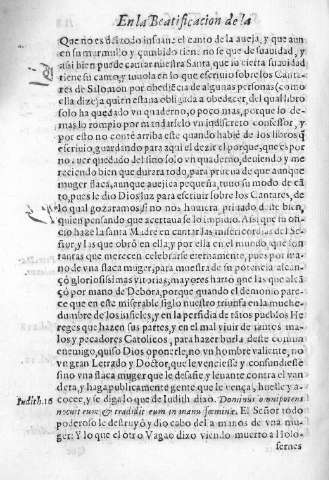 En la Beatificacion de la
Que no es del todo insuaue el canto de la aueja, y que aun
en su murmullo y çumbido tiene no se que de suauidad, y
assi bien puede cantar nuestra Santa, que lo cierta suauidad
tiene su canto, y tuuola en lo que escriuio sobre los Canta-
res de Salomon por obediécia de algunas personas (como
ella dize) a quien estaua obligada a obedecer, del qual libro
solo ha quedado vn quaderno, o poco mas, porque lo de-
mas lo rompio por mandarselo vn indiscreto confessor, y
por esto no conté arriba este quando hablé de los libros q̃
escriuio, guardando para aqui el dezir el porque, que es por
no auer quedado del sino solo vn quaderno, deuiendo y me
reciendo bien que durara todo, para prueua de que aunque
muger flaca, aunque auejica pequeña, tuuo su modo de cã
to, pues le dio Dios luz para escriuir sobre los Cantares, de
lo qual gozaramos si no nos lo huuiera priuado deste bien,
quien pensando que acertaua se lo impidio. Assi que su ofi-
cio haze la santa Madre en cantar las misericordias del Se-
ñor, y las que obró en ella, y por ella en el mundo, que son
tantas que merecen celebrarse eternamente, pues por ma-
no de vna flaca muger, para muestra de su potencia alcan-
çó gloriosissimas vitorias, mayores harto que las que alcã
çó por mano de Debora, porque quando el demonio pare-
ce que en este miserable siglo nuestro triunfa en la muche-
dumbre de los infieles, y en la perfidia de tãtos pueblos He
reges que hazen sus partes, y en el mal viuir de tantos ma-
los y pecadores Catolicos, para hazer burla deste comun
enemigo, quiso Dios oponerle, no vn hombre valiente, no
vn gran Letrado y Doctor, que le venciesse y confundiesse
sino vna flaca muger que le desafie, y leuante contra el van
dera, y haga publicamente gente, que le vença, huelle, y a-
cocee, y se diga lo que de Iudith dixo. Dominus omnipotens
Iudith.16
nocuit eum & tradidit eum in manu fœminæ. El Señor todo
poderoso le destruyó y dio cabo del a manos de vna mu-
ger: Y lo que el otro Vagao dixo viendo muerto a Holo-
fernes